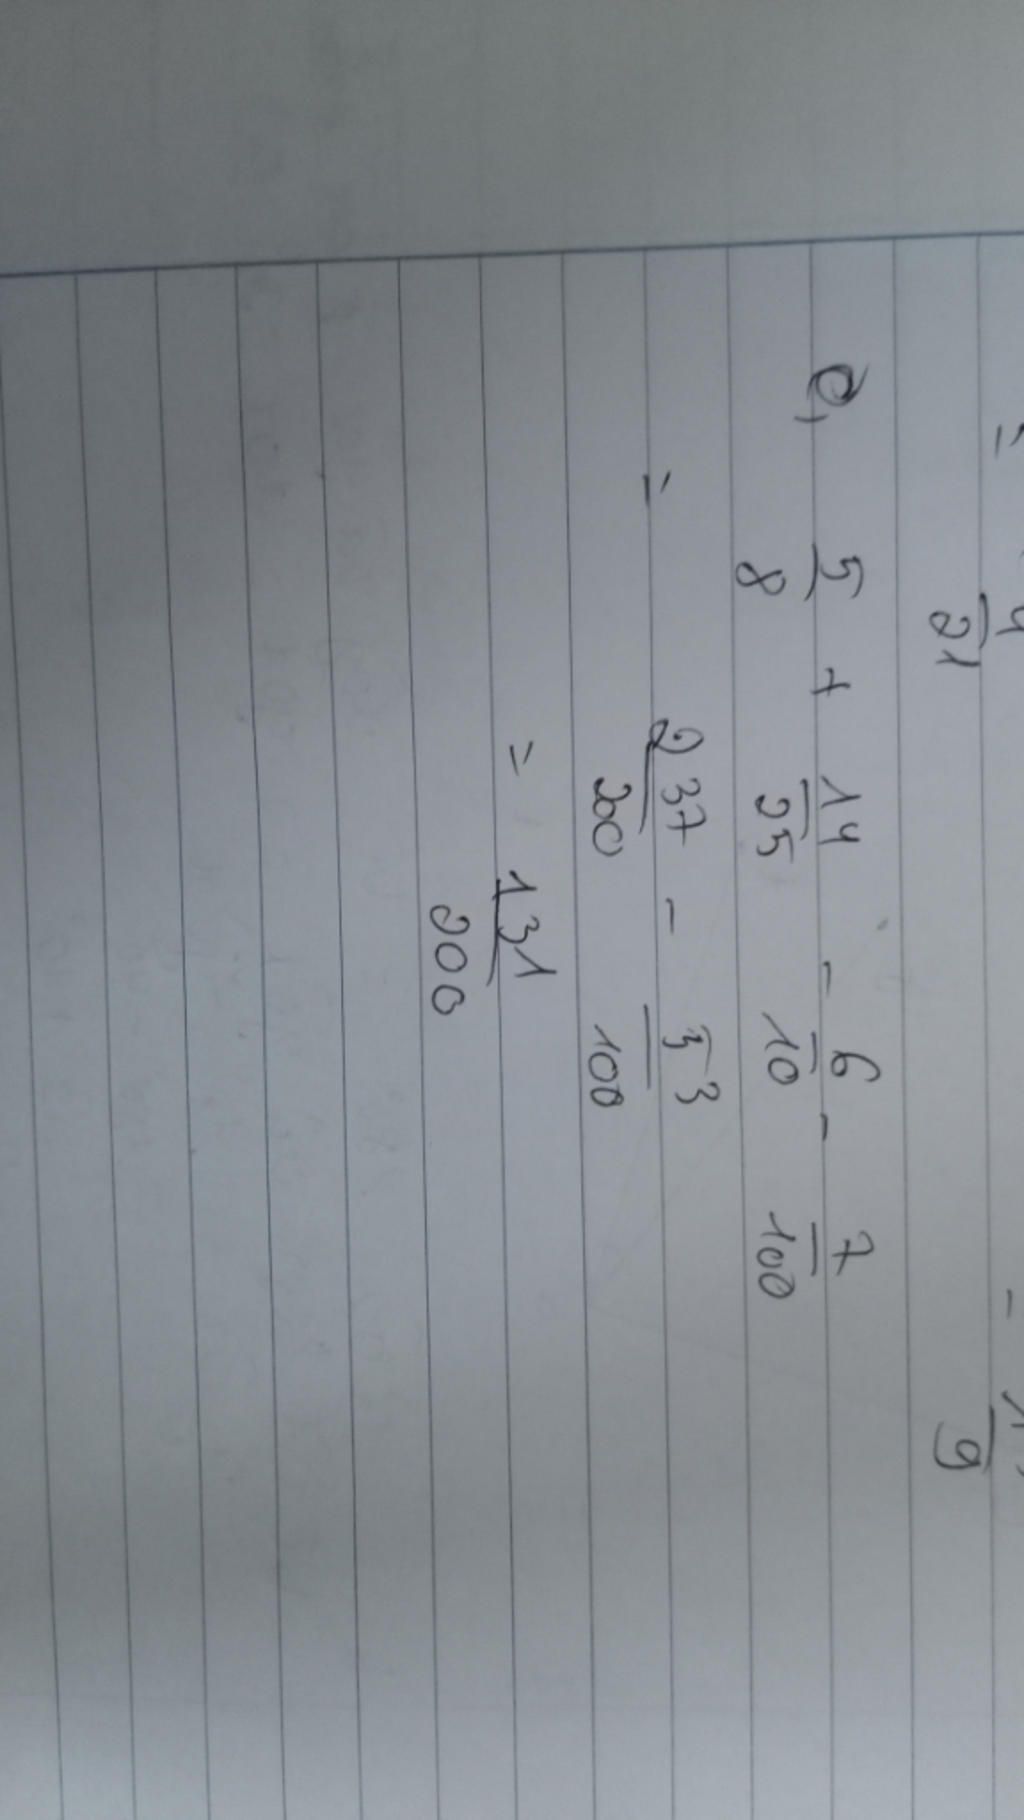 =
21
- 
9
e, 5/8 + 14/25 - 6/10 - 7/100
= 237/200 - 53/100
= 131/200